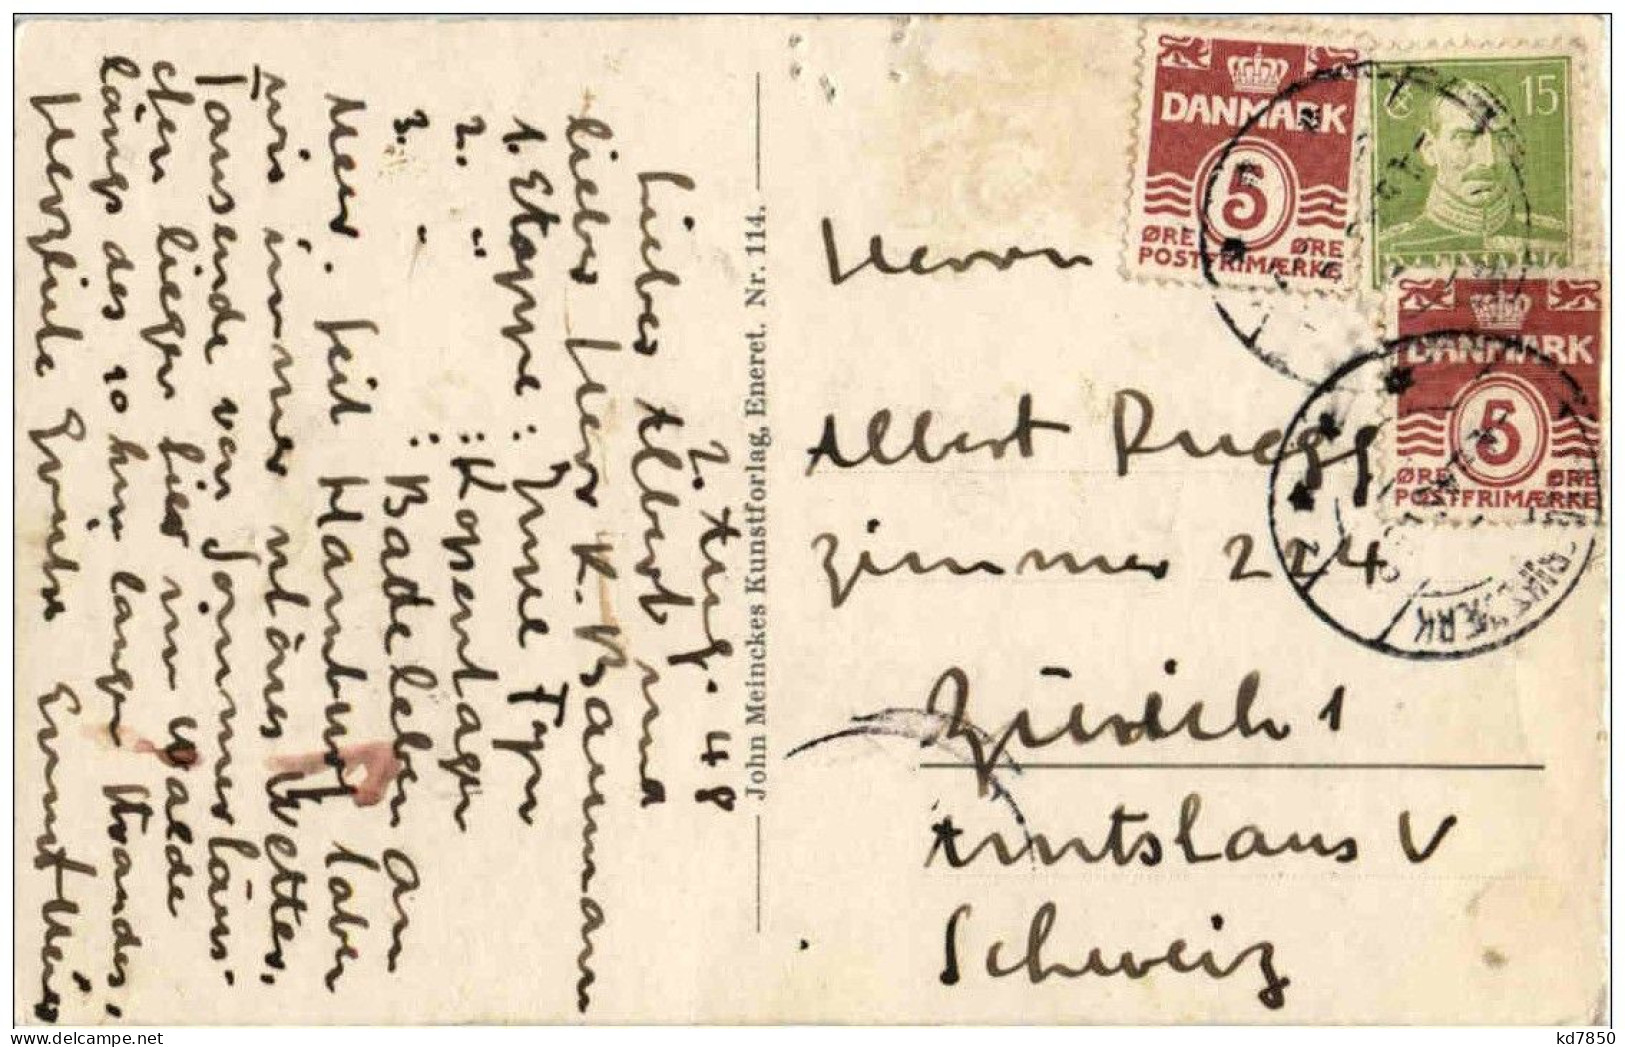 2. Aug. 48
Lieber Albert und
lieber Herr K. Baumann
1. Etappe : Insel Fyn
2. " : Kopenhagen
3. " : Badeleben am
Meer. Seit Hamburg haben
wir immer schönes Wetter.
Tausende von Sommerhäus-
chen liegen hier im Walde
längs des 10 km langen Strandes.
Herzliche Grüsse Ernst Meier
John Meinckes Kunstforlag, Eneret. Nr. 114.
DANMARK
5
ØRE ØRE
POSTFRIMÆRKE
15
DANMARK
5
ØRE ØRE
POSTFRIMÆRKE
Herrn
Albert Ruegg
Zimmer 224
Zürich 1
Amtshaus V
Schweiz
kd7850